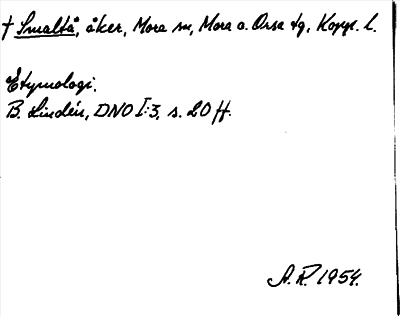 † Smaltå, åker, Mora sn, Mora o. Orsa tg, Kopp. l.
Etymologi.
B. Lindén, DNO I:3, s. 20 ff.
A. R. 1954.